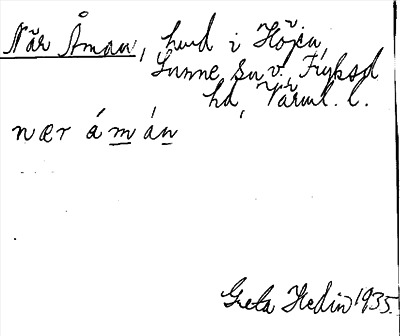 När Åman, hmd i Höjen,
Sunne sn v., Fryksd
hd, Värml. l.
nær ámán
Greta Hedin 1935.